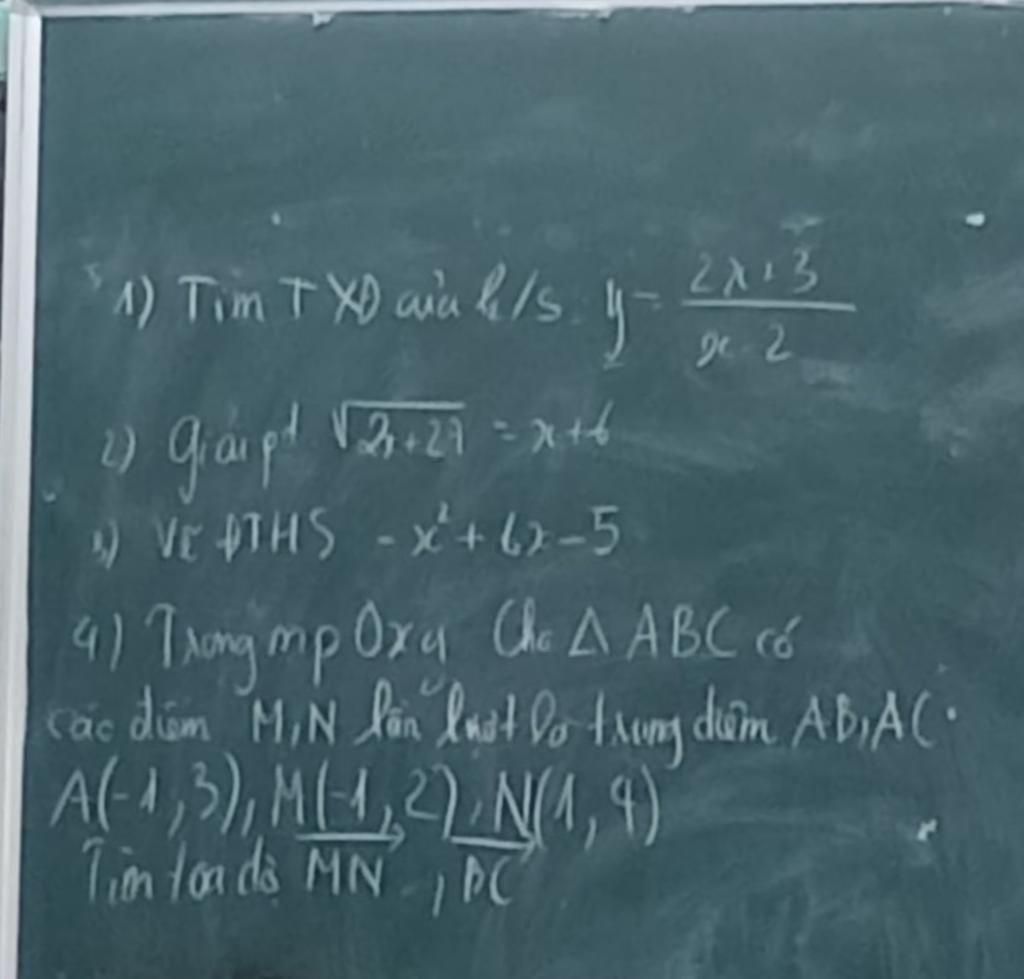 1) Tìm TXĐ của h/s: y = \frac{2x+3}{x-2}
2) Giải pt √(2x+27) = x+6
3) Vẽ ĐTHS -x²+6x-5
4) Trong mp Oxy Cho Δ ABC có
các điểm M,N lần lượt là trung điểm AB,AC.
A(-1,3), M(-1,2), N(1,4)
Tìm tọa độ \overrightarrow{MN}, \overrightarrow{BC}